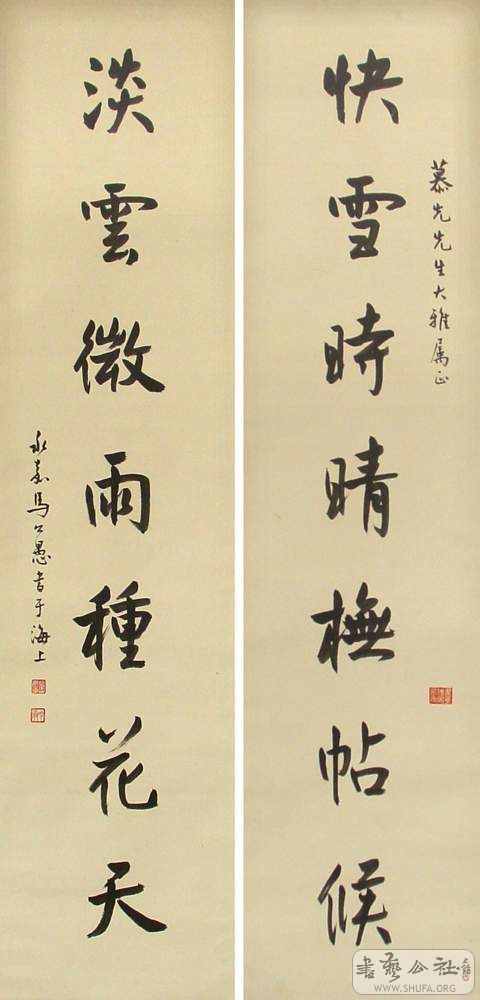 慕先先生大雅属正
快雪時晴橅帖候
淡雲微雨種花天
永嘉馬公愚書于海上
書藝公社
WWW.SHUFA.ORG